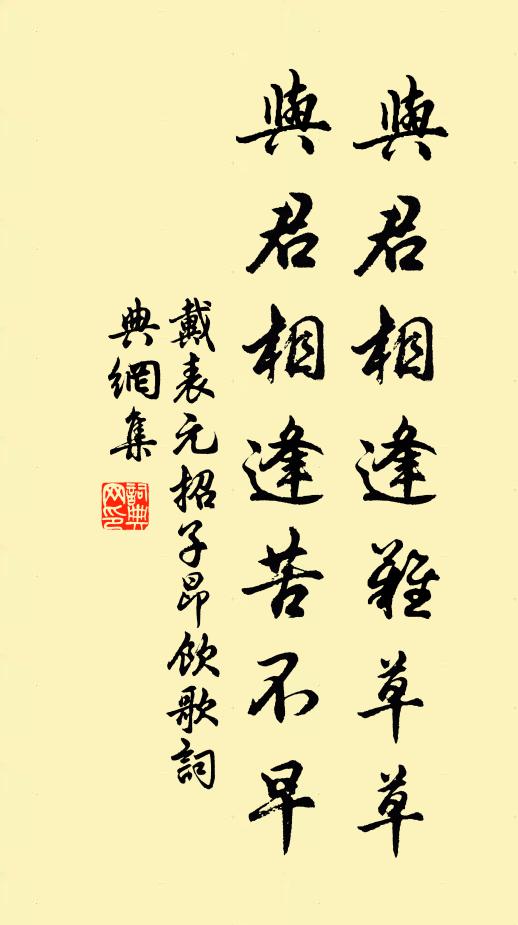 與君相逢難草草
與君相逢苦不早
戴表元招子昂飲歌詞
典網集
詞典
网印